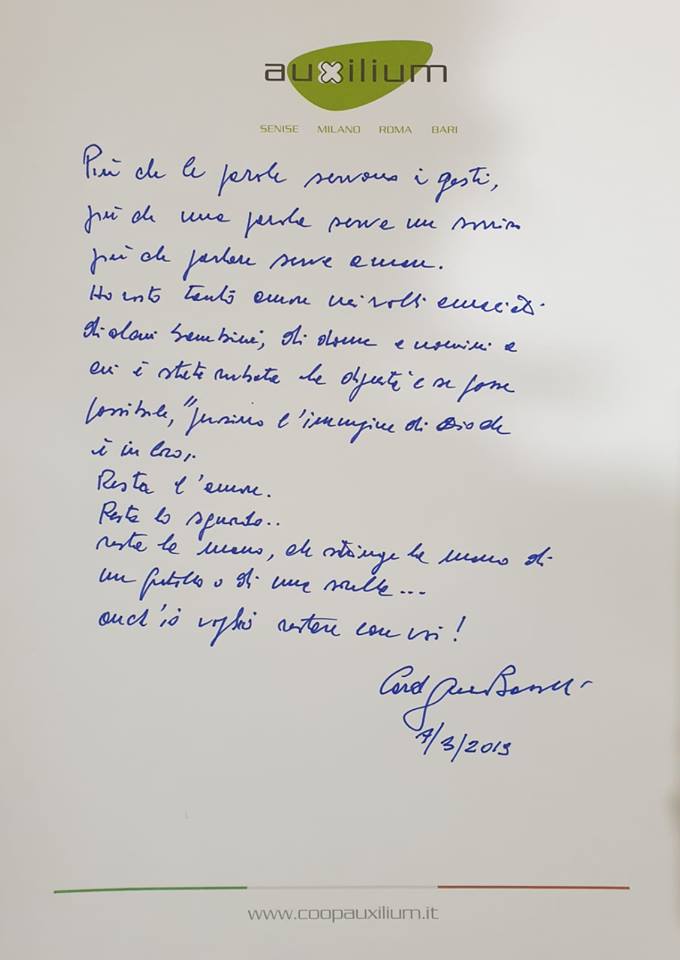 auxilium
SENISE MILANO ROMA BARI
Più che le parole servono i gesti,
più che una parola serve un sorriso
più che parlare serve amare.
Ho visto tanto amore nei volti emaciati
di alcuni bambini, di donne e uomini a
cui è stata rubata la dignità e se fosse
possibile, "persino l'immagine di Dio che
è in loro,.
Resta l'amore.
Resta lo sguardo..
resta la mano, che stringe la mano di
un fratello o di una sorella...
anch'io voglio restare con voi!
Card
4/3/2019
www.coopauxilium.it